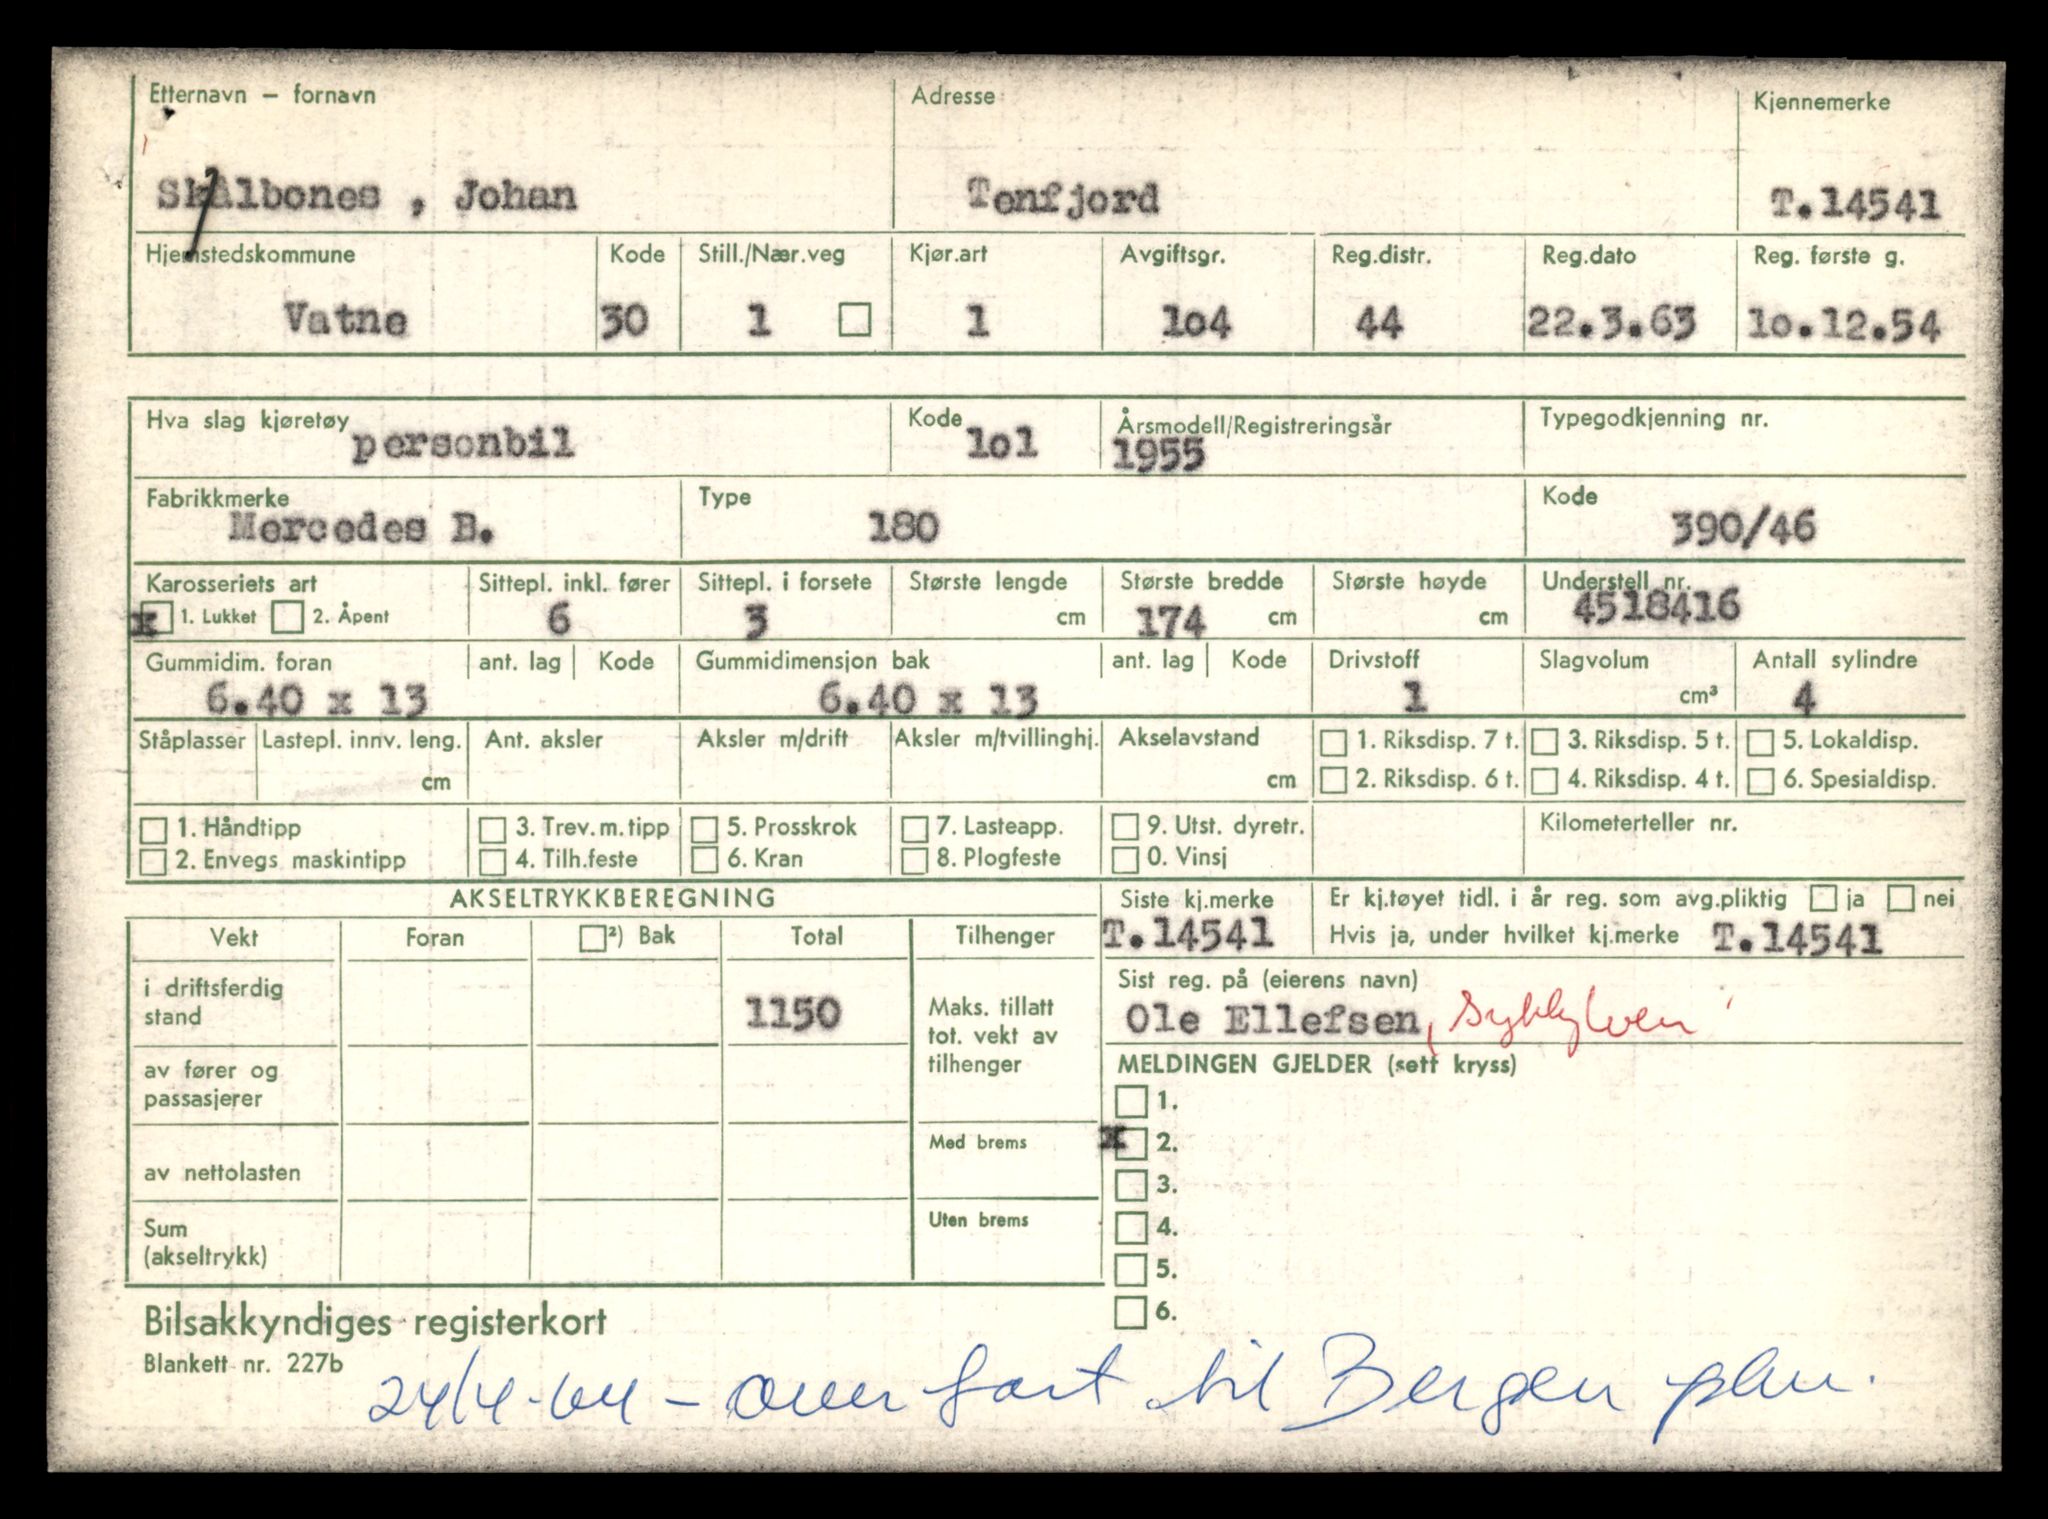 Etternavn – fornavn Adresse Kjennemerke
Skålbones , Johan Tenfjord T.14541
Hjemstedskommune Kode Still./Nær.veg Kjør.art Avgiftsgr. Reg.distr. Reg.dato Reg. første g.
Vatne 30 1 1 1o4 44 22.3.63 1o.12.54
Hva slag kjøretøy Kode Årsmodell/Registreringsår Typegodkjenning nr.
personbil 1o1 1955
Fabrikkmerke Type Kode
Mercedes B. 180 390/46
Karosseriets art Sittepl. inkl. fører Sittepl. i forsete Største lengde Største bredde Største høyde Understell nr.
x 1. Lukket 2. Åpent 6 3 cm 174 cm cm 4518416
Gummidim. foran ant. lag Kode Gummidimensjon bak ant. lag Kode Drivstoff Slagvolum Antall sylindre
6.40 x 13 6.40 x 13 1 cm³ 4
Ståplasser Lastepl. innv. leng. Ant. aksler Aksler m/drift Aksler m/tvillinghj. Akselavstand 1. Riksdisp. 7 t. 3. Riksdisp. 5 t. 5. Lokaldisp.
cm cm 2. Riksdisp. 6 t. 4. Riksdisp. 4 t. 6. Spesialdisp.
1. Håndtipp 3. Trev.m.tipp 5. Prosskrok 7. Lasteapp. 9. Utst. dyretr. Kilometerteller nr.
2. Envegs maskintipp 4. Tilh.feste 6. Kran 8. Plogfeste 0. Vinsj
AKSELTRYKKBEREGNING Siste kj.merke Er kj.tøyet tidl. i år reg. som avg.pliktig ja nei
T.14541 Hvis ja, under hvilket kj.merke T.14541
Vekt Foran ²) Bak Total Tilhenger
Sist reg. på (eierens navn)
Ole Ellefsen, Sykkylven
i driftsferdig
stand 1150
Maks. tillatt
tot. vekt av
tilhenger
MELDINGEN GJELDER (sett kryss)
av fører og
passasjerer
1.
Med brems x 2.
av nettolasten 3.
Sum Uten brems 4.
(akseltrykk) 5.
6.
Bilsakkyndiges registerkort
Blankett nr. 227b
24/4-64 - overført til Bergen